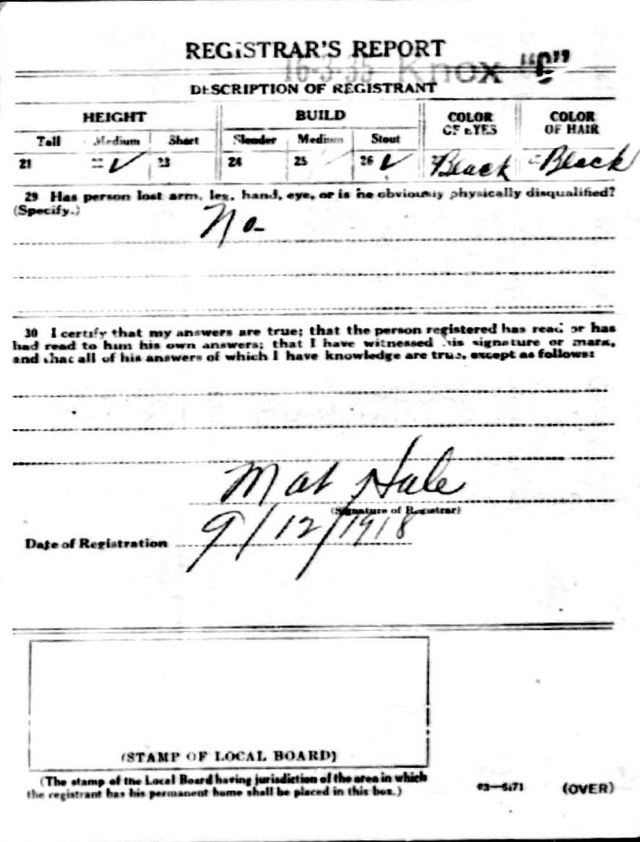 REGISTRAR'S REPORT
16-3-35 Knox "C"
DESCRIPTION OF REGISTRANT
HEIGHT BUILD COLOR OF EYES COLOR OF HAIR
Tall Medium Short Slender Medium Stout
21 22 ✓ 23 24 25 26 ✓ Black Black
29 Has person lost arm, leg, hand, eye, or is he obviously physically disqualified?
(Specify.)
No-
30 I certify that my answers are true; that the person registered has read or has
had read to him his own answers; that I have witnessed his signature or mark,
and that all of his answers of which I have knowledge are true, except as follows:
Mat Hale
(Signature of Registrar)
Date of Registration 9/12/1918
(STAMP OF LOCAL BOARD)
(The stamp of the Local Board having jurisdiction of the area in which
the registrant has his permanent home shall be placed in this box.)
(OVER)